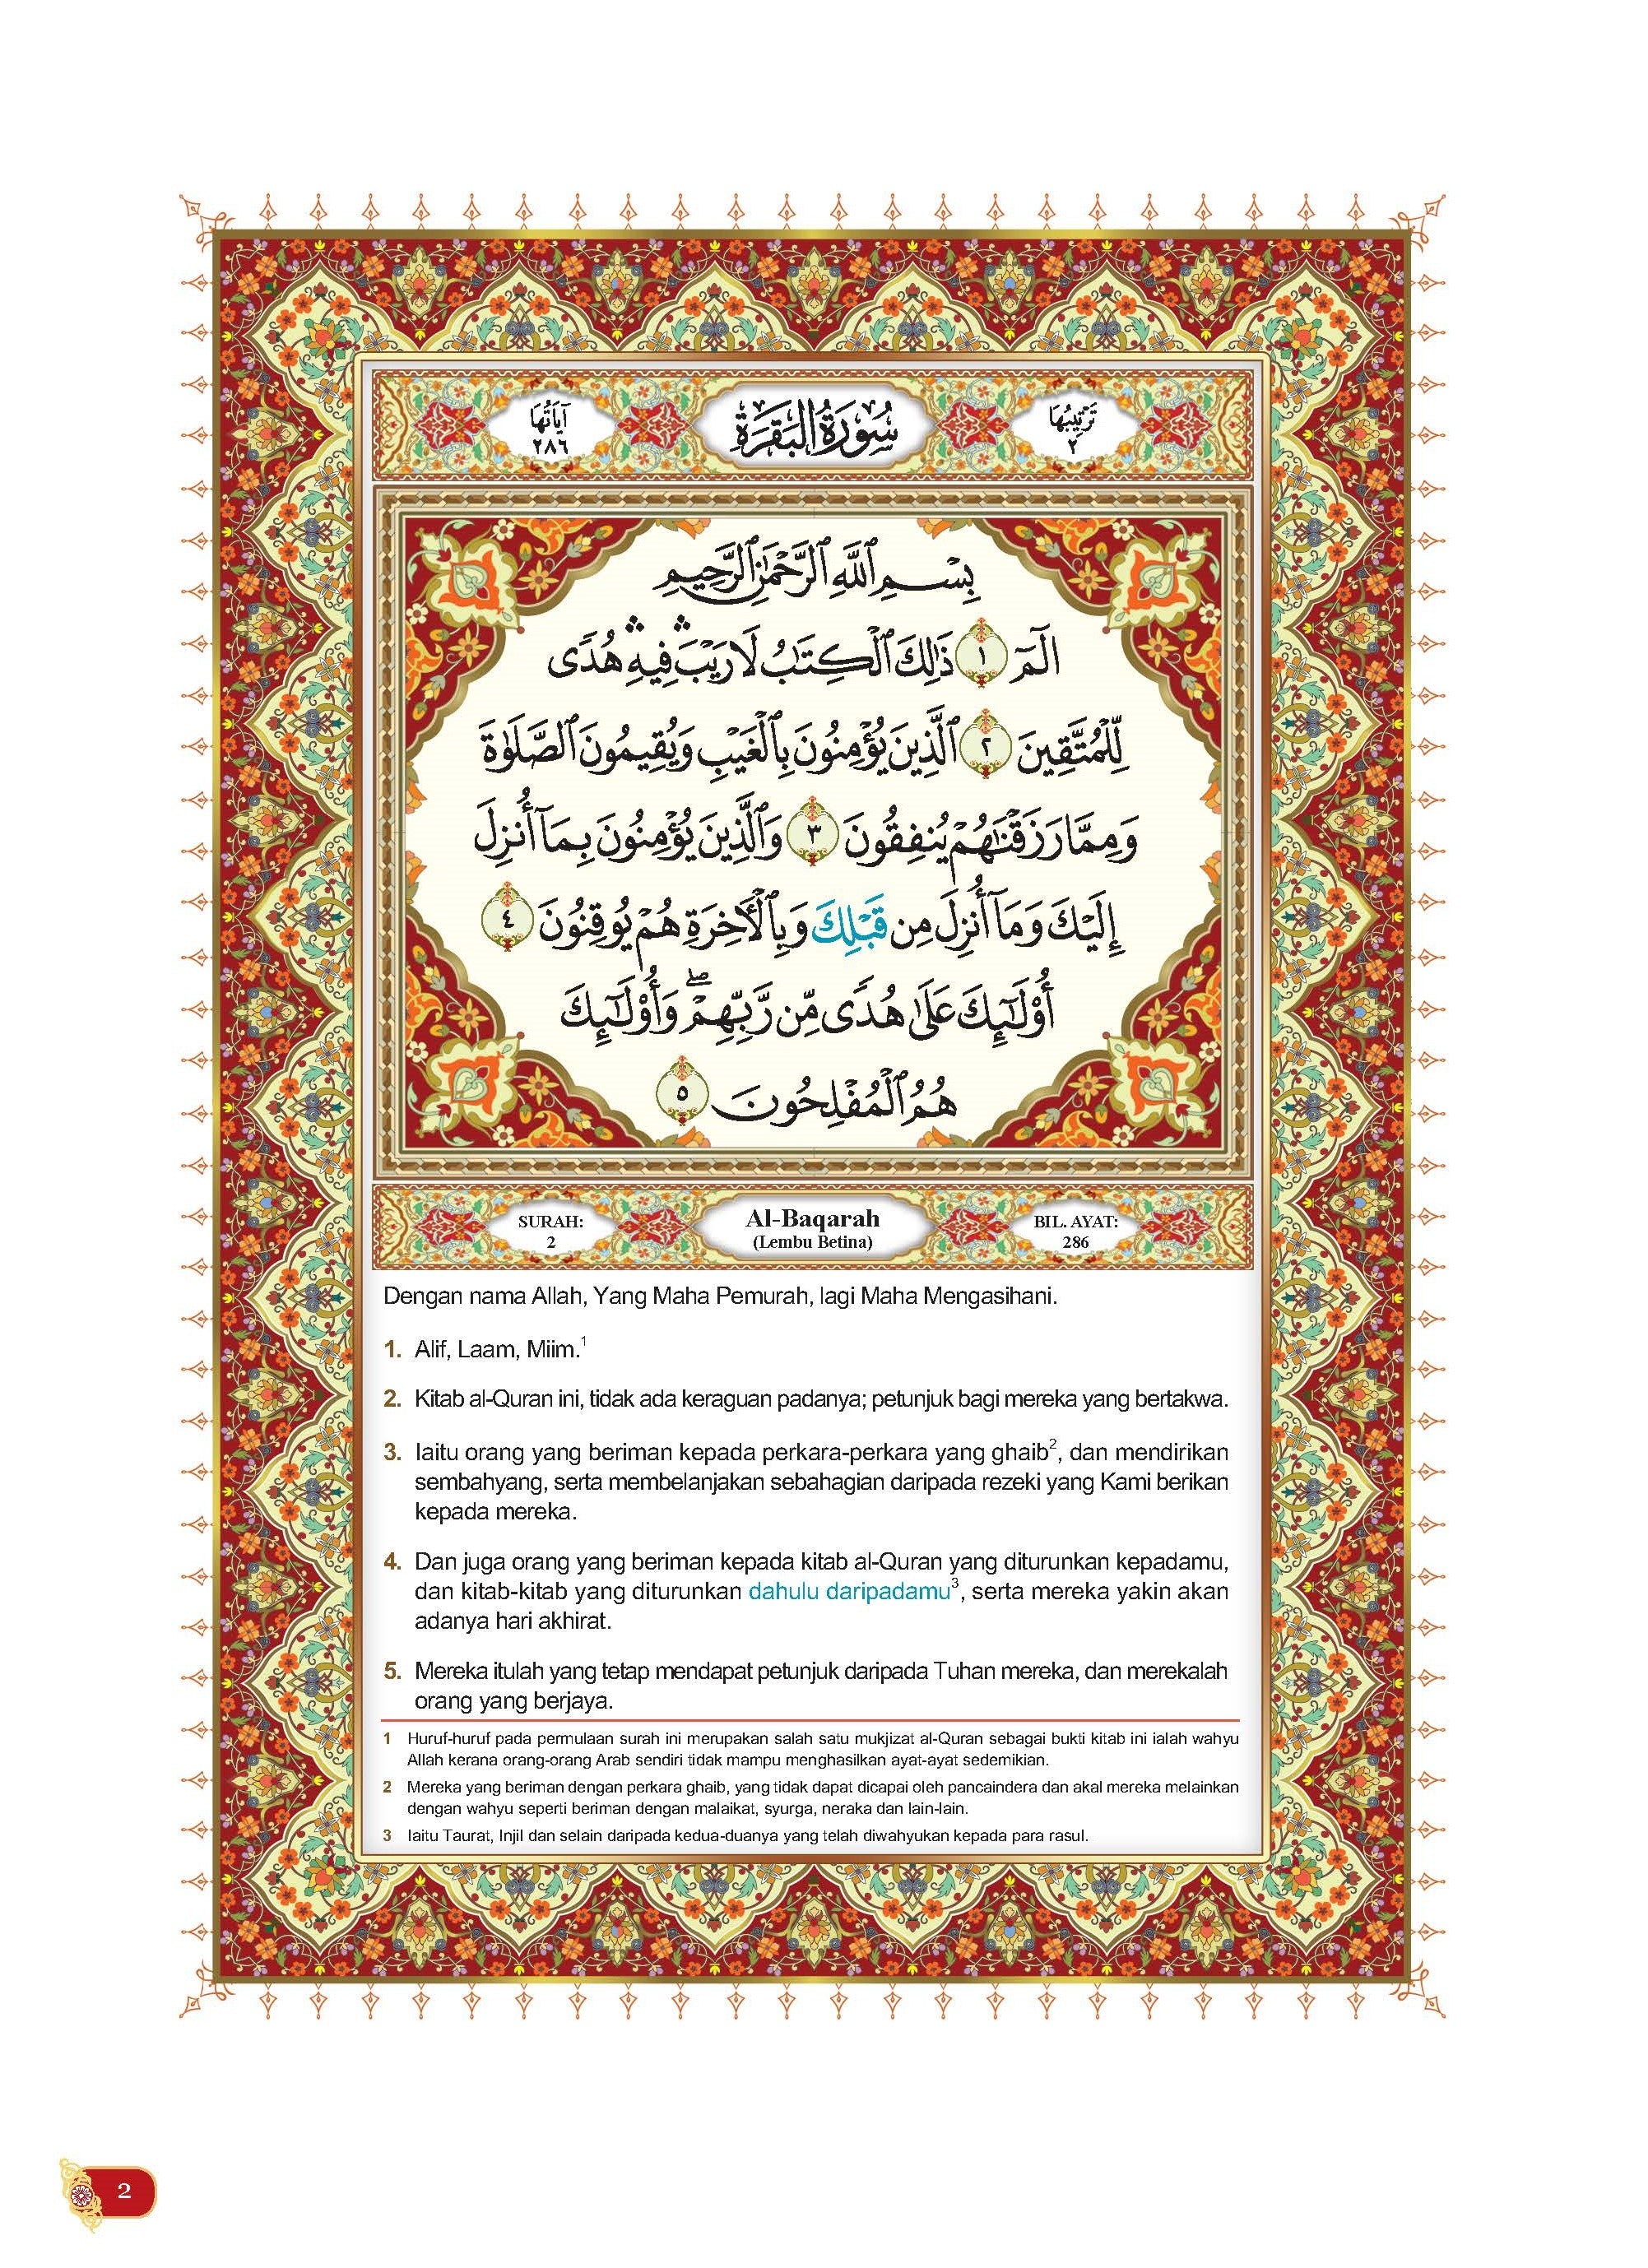 ترتيبها
٢
سُورَةُ البَقَرَةِ
آياتها
٢٨٦
بِسْمِ ٱللَّهِ ٱلرَّحْمَٰنِ ٱلرَّحِيمِ
الٓمٓ ١ ذَٰلِكَ ٱلْكِتَٰبُ لَا رَيْبَۛ فِيهِۛ هُدًى
لِّلْمُتَّقِينَ ٢ ٱلَّذِينَ يُؤْمِنُونَ بِٱلْغَيْبِ وَيُقِيمُونَ ٱلصَّلَوٰةَ
وَمِمَّا رَزَقْنَٰهُمْ يُنفِقُونَ ٣ وَٱلَّذِينَ يُؤْمِنُونَ بِمَآ أُنزِلَ
إِلَيْكَ وَمَآ أُنزِلَ مِن قَبْلِكَ وَبِٱلْأَخِرَةِ هُمْ يُوقِنُونَ ٤
أُو۟لَٰٓئِكَ عَلَىٰ هُدًى مِّن رَّبِّهِمْۖ وَأُو۟لَٰٓئِكَ
هُمُ ٱلْمُفْلِحُونَ ٥
SURAH:
2
Al-Baqarah
(Lembu Betina)
BIL. AYAT:
286
Dengan nama Allah, Yang Maha Pemurah, lagi Maha Mengasihani.
1. Alif, Laam, Miim.1
2. Kitab al-Quran ini, tidak ada keraguan padanya; petunjuk bagi mereka yang bertakwa.
3. Iaitu orang yang beriman kepada perkara-perkara yang ghaib2, dan mendirikan
sembahyang, serta membelanjakan sebahagian daripada rezeki yang Kami berikan
kepada mereka.
4. Dan juga orang yang beriman kepada kitab al-Quran yang diturunkan kepadamu,
dan kitab-kitab yang diturunkan dahulu daripadamu3, serta mereka yakin akan
adanya hari akhirat.
5. Mereka itulah yang tetap mendapat petunjuk daripada Tuhan mereka, dan merekalah
orang yang berjaya.
1 Huruf-huruf pada permulaan surah ini merupakan salah satu mukjizat al-Quran sebagai bukti kitab ini ialah wahyu
Allah kerana orang-orang Arab sendiri tidak mampu menghasilkan ayat-ayat sedemikian.
2 Mereka yang beriman dengan perkara ghaib, yang tidak dapat dicapai oleh pancaindera dan akal mereka melainkan
dengan wahyu seperti beriman dengan malaikat, syurga, neraka dan lain-lain.
3 Iaitu Taurat, Injil dan selain daripada kedua-duanya yang telah diwahyukan kepada para rasul.
2